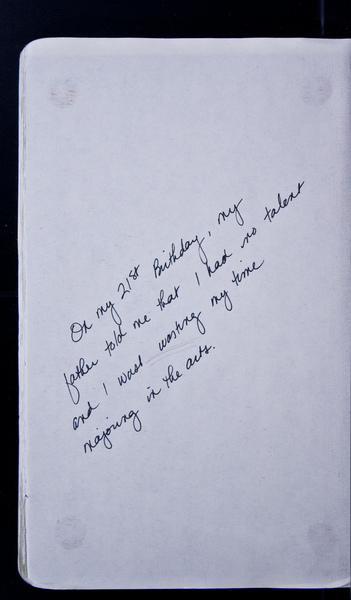 On my 21st Birthday, my
father told me that I had no talent
and I was wasting my time
majoring in the arts.